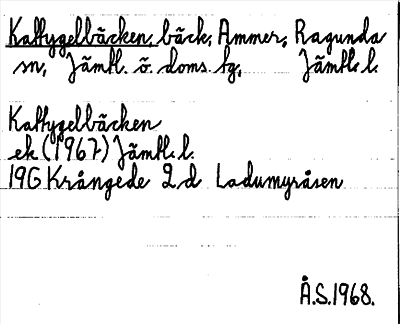 Kattygelbäcken, bäck, Ammer, Ragunda
sn, Jämtl. ö. doms. tg, Jämtl. l.
Kattygelbäcken
ek (1967) Jämtl. l.
19G Krångede 2 d Ladumyråsen
Å.S. 1968.